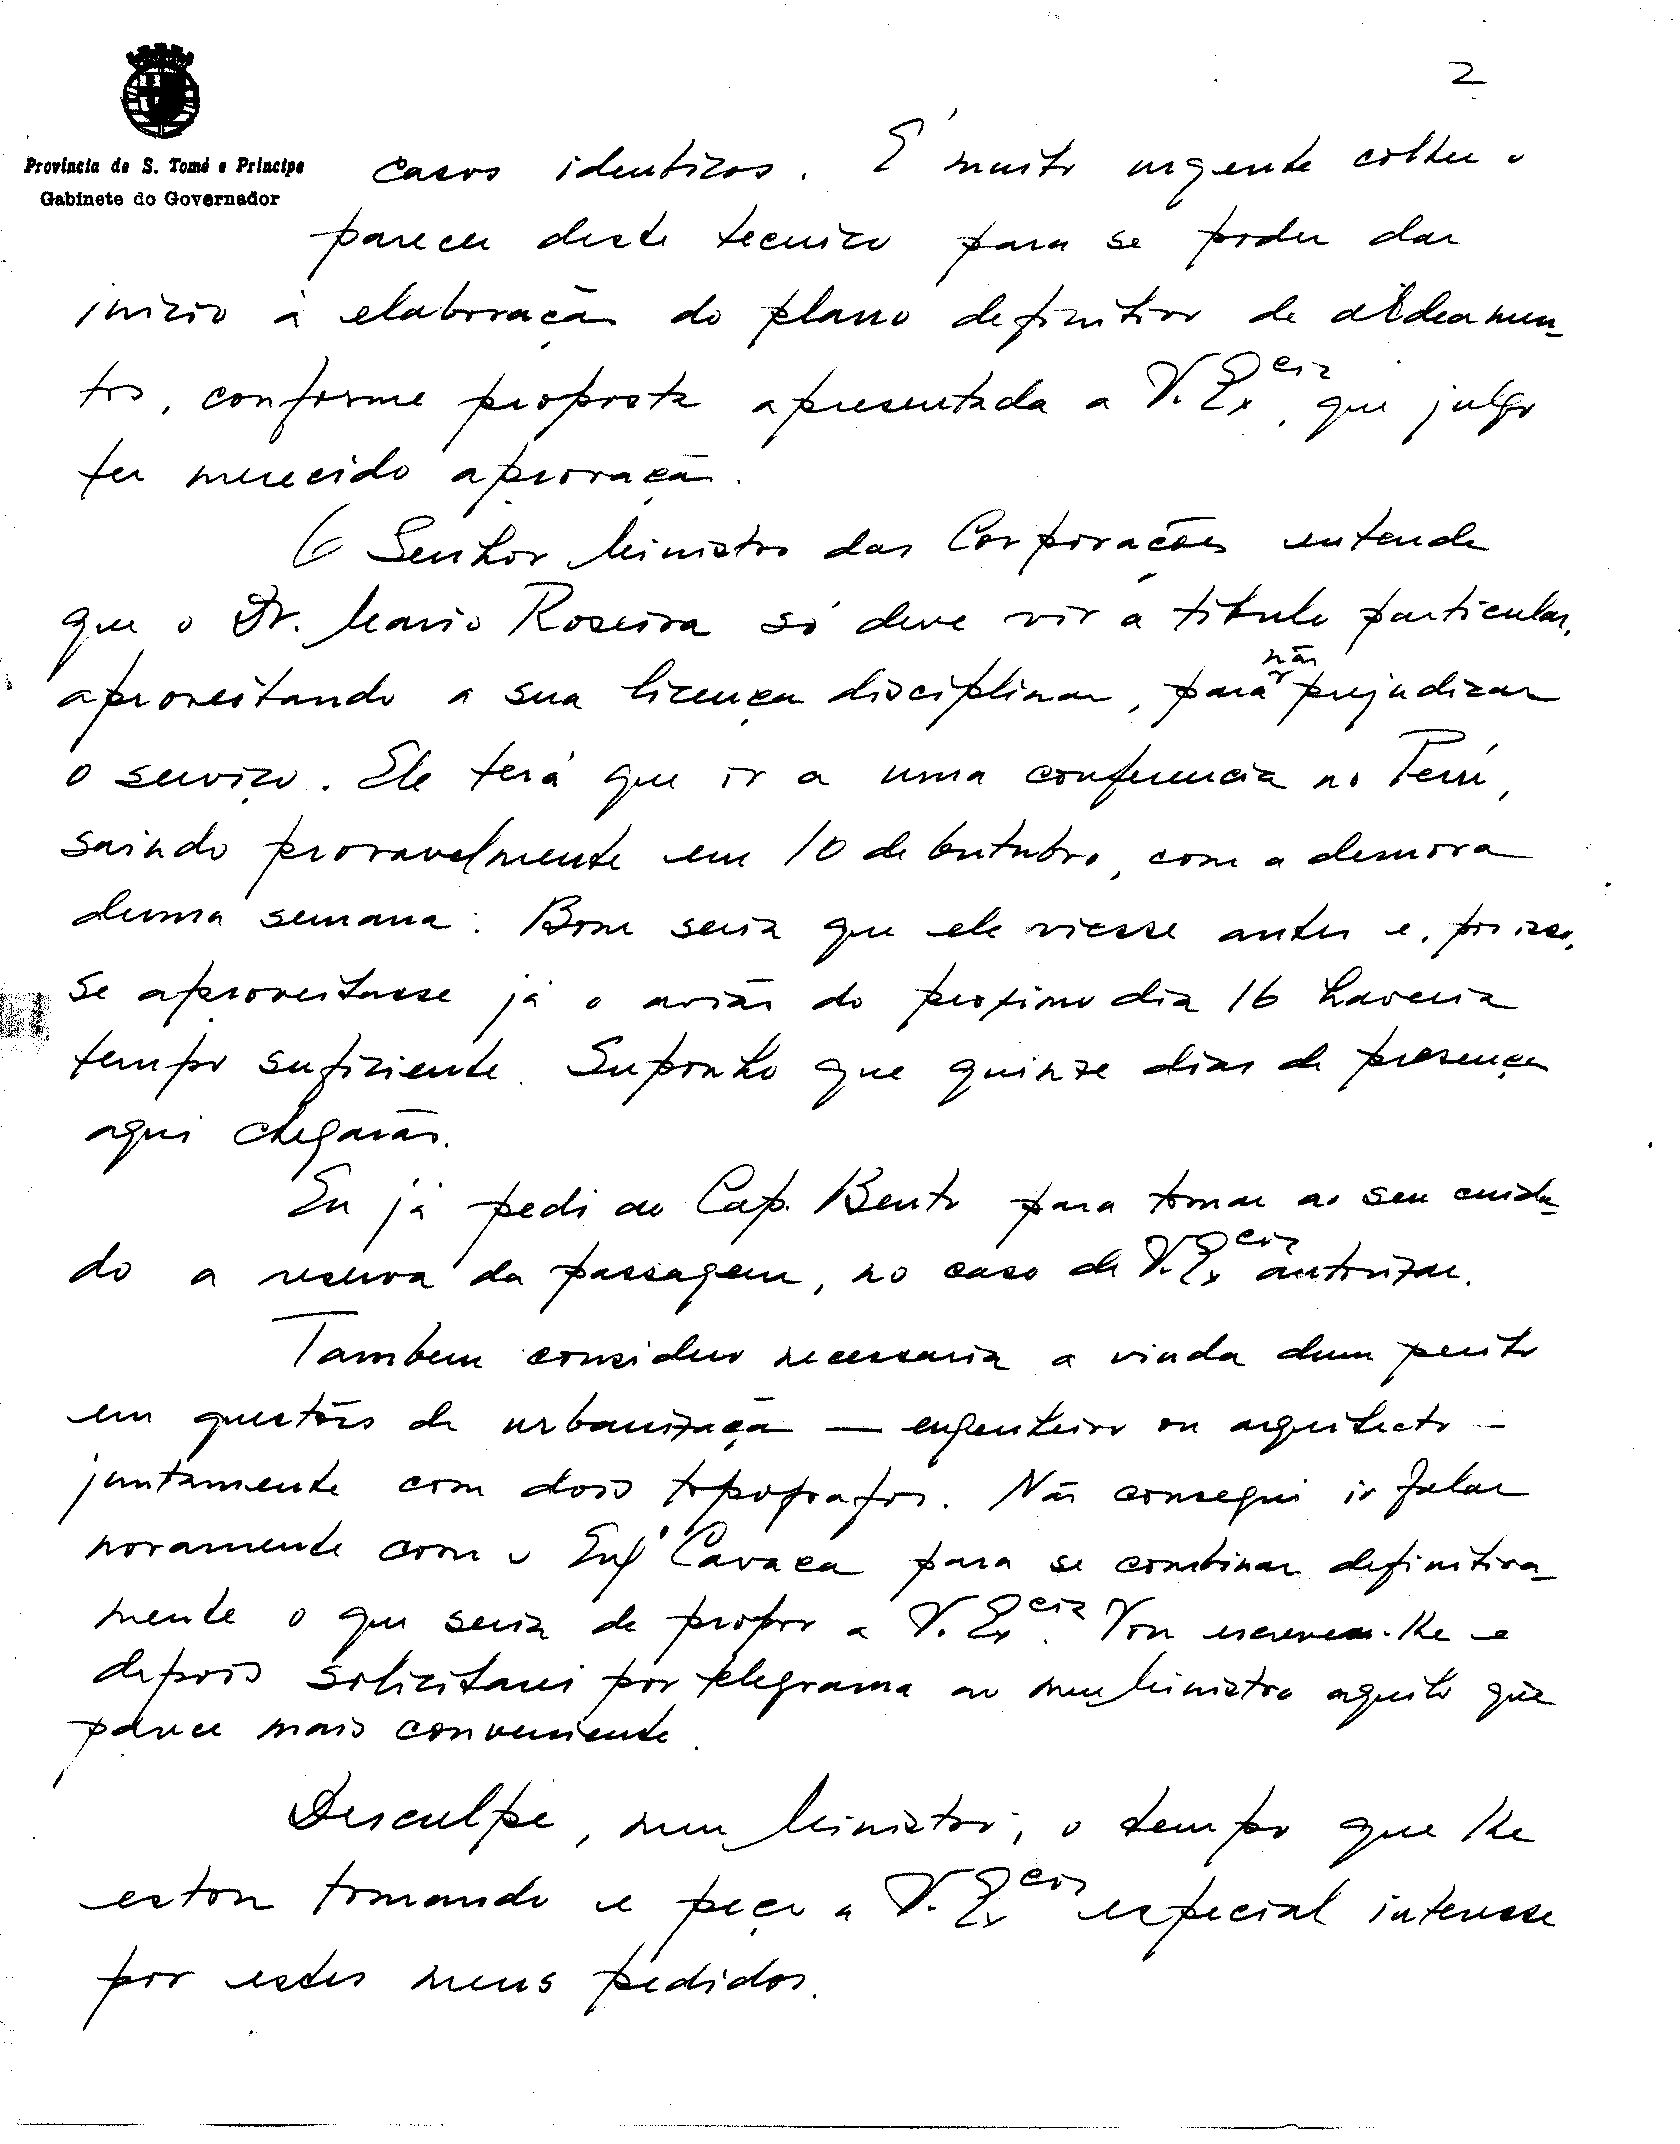 2
Província de S. Tomé e Príncipe
Gabinete do Governador
casos identicos. É muito urgente colher o
parecer deste tecnico para se poder dar
inicio à elaboração do plano definitivo de aldeamen-
tos, conforme proposta apresentada a V. Ex.cia, que julgo
ter merecido aprovação.
O Senhor Ministro das Corporações entende
que o Dr. Mario Roseira só deve vir a titulo particular,
aproveitando a sua licença disciplinar, para não prejudicar
o serviço. Ele terá que ir a uma conferencia no Perú,
saindo provavelmente em 10 de Outubro, com a demora
duma semana. Bom seria que ele viesse antes e, por isso,
se aproveitasse já o avião do proximo dia 16 haveria
tempo suficiente. Suponho que quinze dias de presença
aqui chegarão.
Eu já pedi ao Cap. Bento para tomar ao seu cuida-
do a reserva da passagem, no caso de V. Ex.cia autorizar.
Tambem considero necessaria a vinda dum perito
em questões de urbanização — engenheiro ou arquitecto —
juntamente com dois topografos. Não consegui ir falar
novamente com o Engº Cavaca para se combinar definitiva-
mente o que seria de propor a V. Ex.cia. Vou escrever-lhe e
depois solicitarei por telegrama ao meu Ministro aquilo que
parece mais conveniente.
Desculpe, meu Ministro, o tempo que lhe
estou tomando e peço a V. Ex.cia especial interesse
por estes meus pedidos.